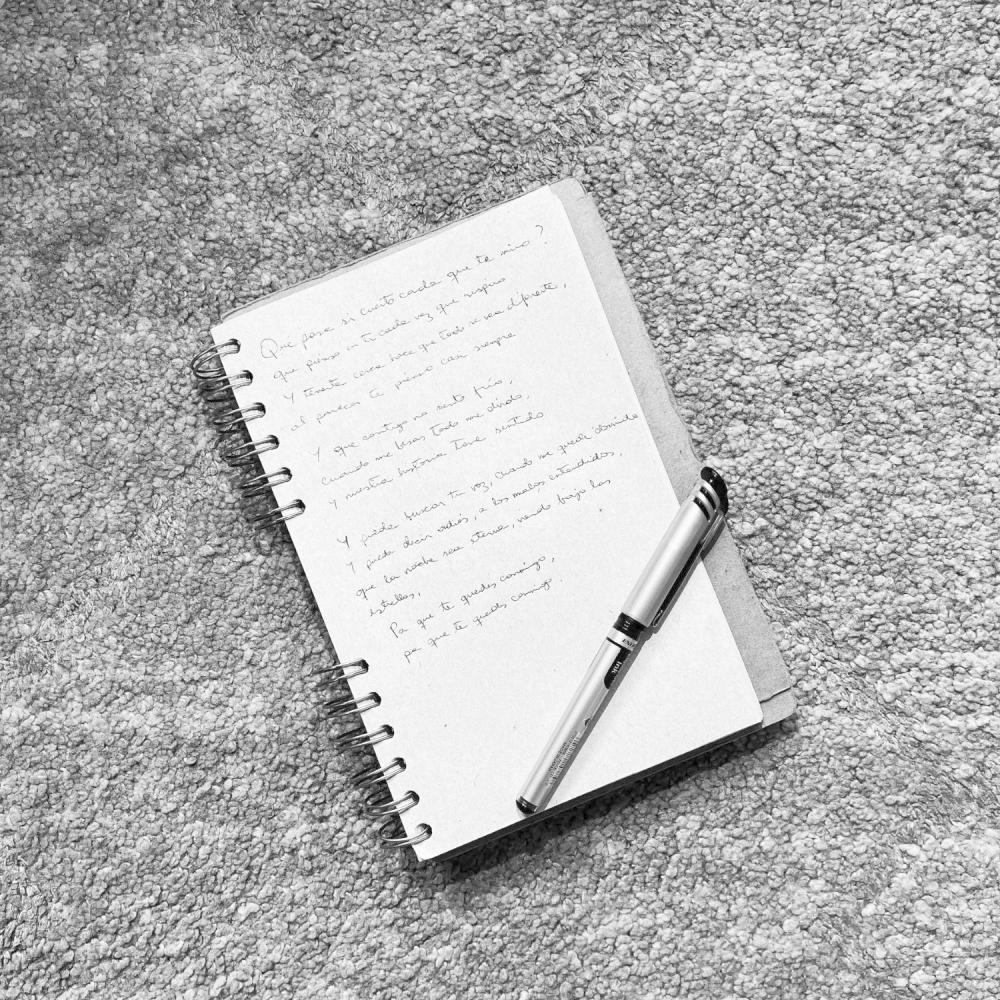 Que pasa si cuento cada que te miro?
que pienso en ti cada vez que respiro
Y tenerte cerca hace que todo se vea diferente,
al parecer te pienso casi siempre
Y que contigo no siento frío,
cuando me besas todo me olvido,
y nuestra historia tiene sentido
Y puedo buscar tu voz, cuando me quede dormido
Y puedo decir adiós, a los malos entendidos,
que la noche sea eterna, viendo bajo las
estrellas,
Pa que te quedes conmigo,
pa que te quedes conmigo.
ink